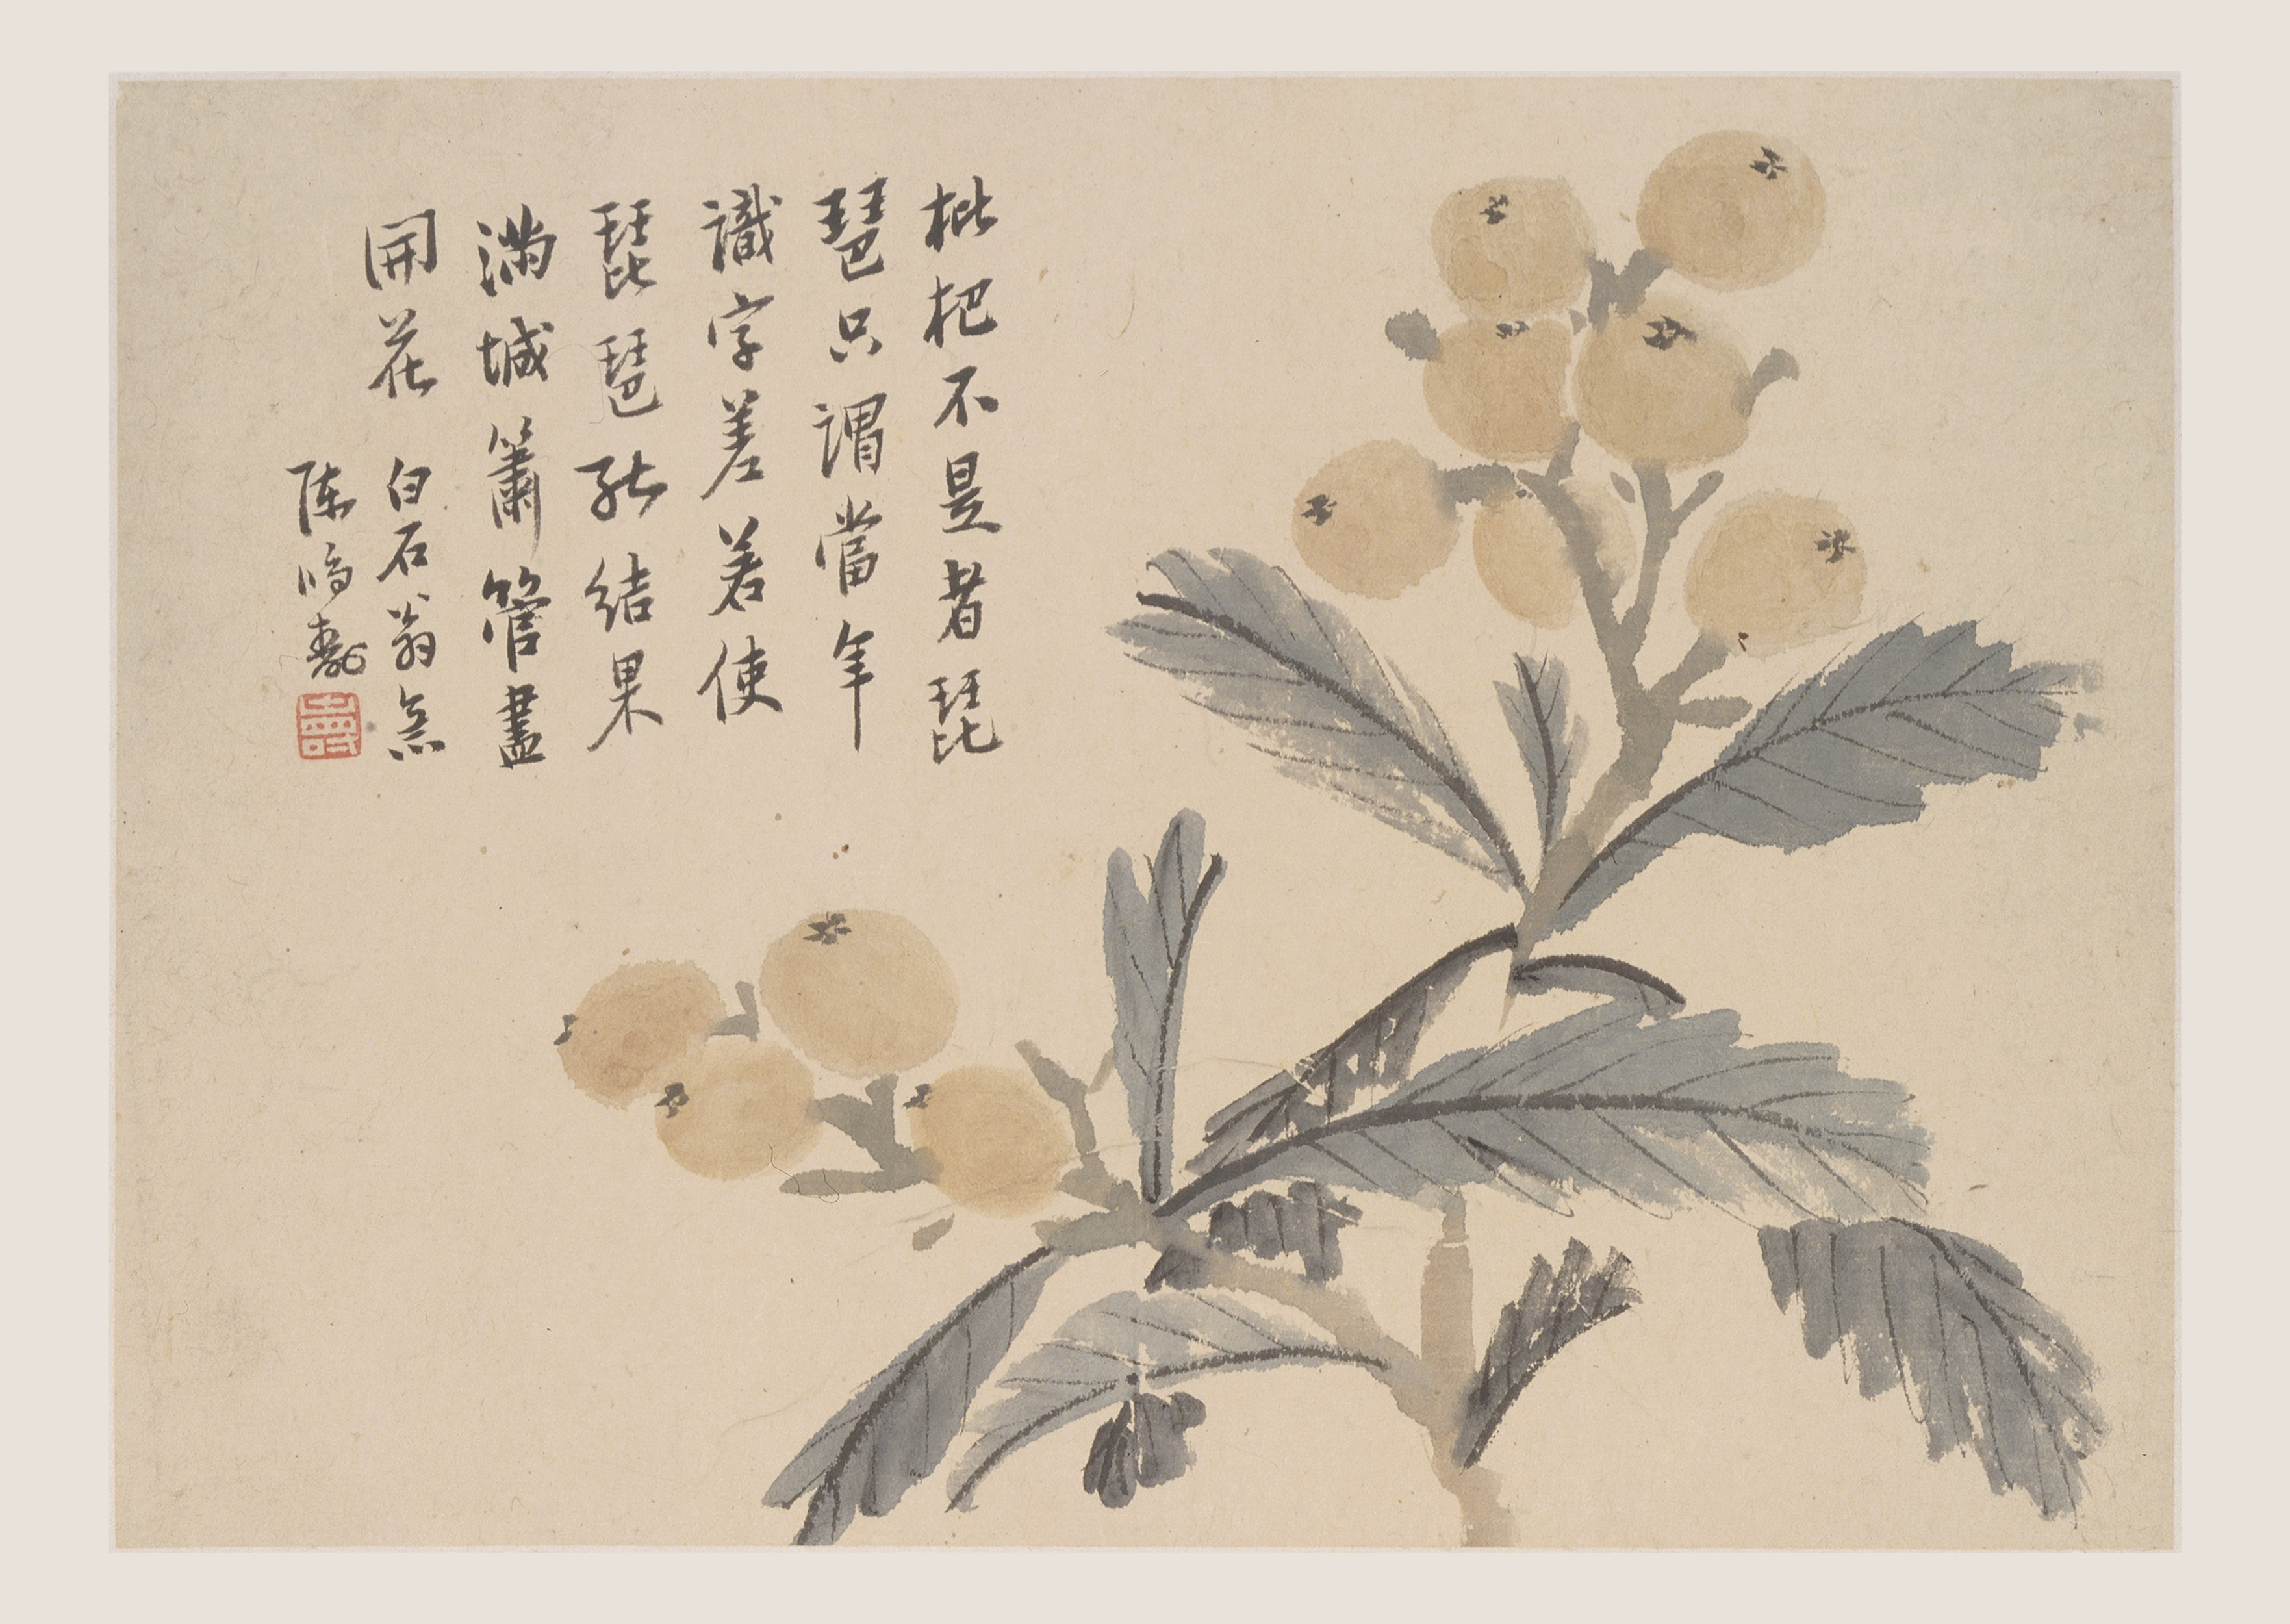 枇杷不是者琵
琶只謂當年
識字差若使
琵琶能結果
滿城簫管盡
開花 白石翁意
陳鴻壽